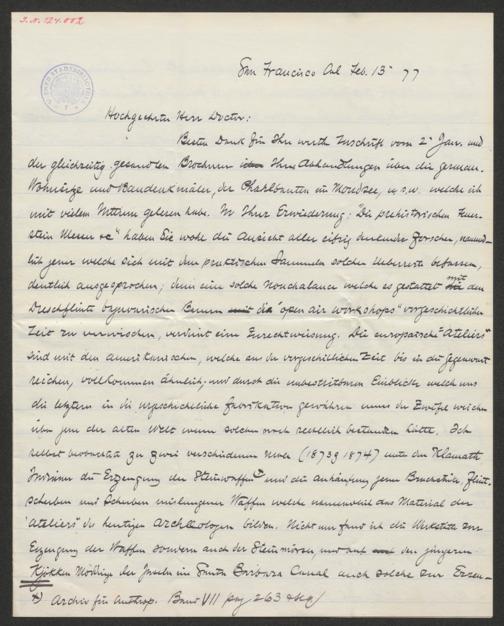 J.N. 124.002
San Francisco Cal Feb. 13 - 77
Hochgeehrter Herr Doctor:
Besten Dank für Ihre werthe Zuschrift vom 2 Jan. und
der gleichzeitig gesandten Brochuren Ihre Abhandlungen über die german.
Wohnsitze und Baudenkmäler, der Pfahlbauten im Mondsee, u.s.w. welche ich
mit vielem Interesse gelesen habe. In Ihrer Erwiederung: "Die prehistorischen Feuer-
stein Messer &c" haben Sie wohl die Ansicht aller eifrig denkender Forscher, nament-
lich jener welche sich mit dem praktischen Sammeln solcher Ueberreste befassen,
deutlich ausgesprochen; denn eine solche Nonchalance welche es gestattet mit den
Dreschflints Bauern die "open air workshops" vorgeschichtlicher
Zeit zu verwischen, verdient eine Zurechtweisung. Die europäische "Ateliers"
sind mit den amerikanischen, welche an der vorgeschichtlichen Zeit bis in die Gegenwart
reichen, vollkommen ähnlich, und durch die unbestreitbaren Einblicke welche uns
die letztern in die urgeschichtliche Fabrikation gewähren muss der Zweifel weichen
über jene der alten Welt wenn solcher noch rechtlich bestanden hätte. Ich
selbst beobachtete zu zwei verschiedenen Malen (1873 & 1874) unter den Klamath
Indianer die Erzeugung der Steinwaffen und die Anhäufung jener Bruchstücke, Flint-
scherben und Scherben mislungener Waffen welche namentlich das Material der
"Ateliers" der heutigen Archäologen bilden. Nicht nur fand ich die Werkstätte zur
Erzeugung der Waffen sondern auch der Steinmörser und auf den jüngeren
Kjökken Möddinge der Inseln im Santa Barbara Canal auch solche zur Erzeu-
*) Archiv für Anthrop. Band VII pag 263 & seq